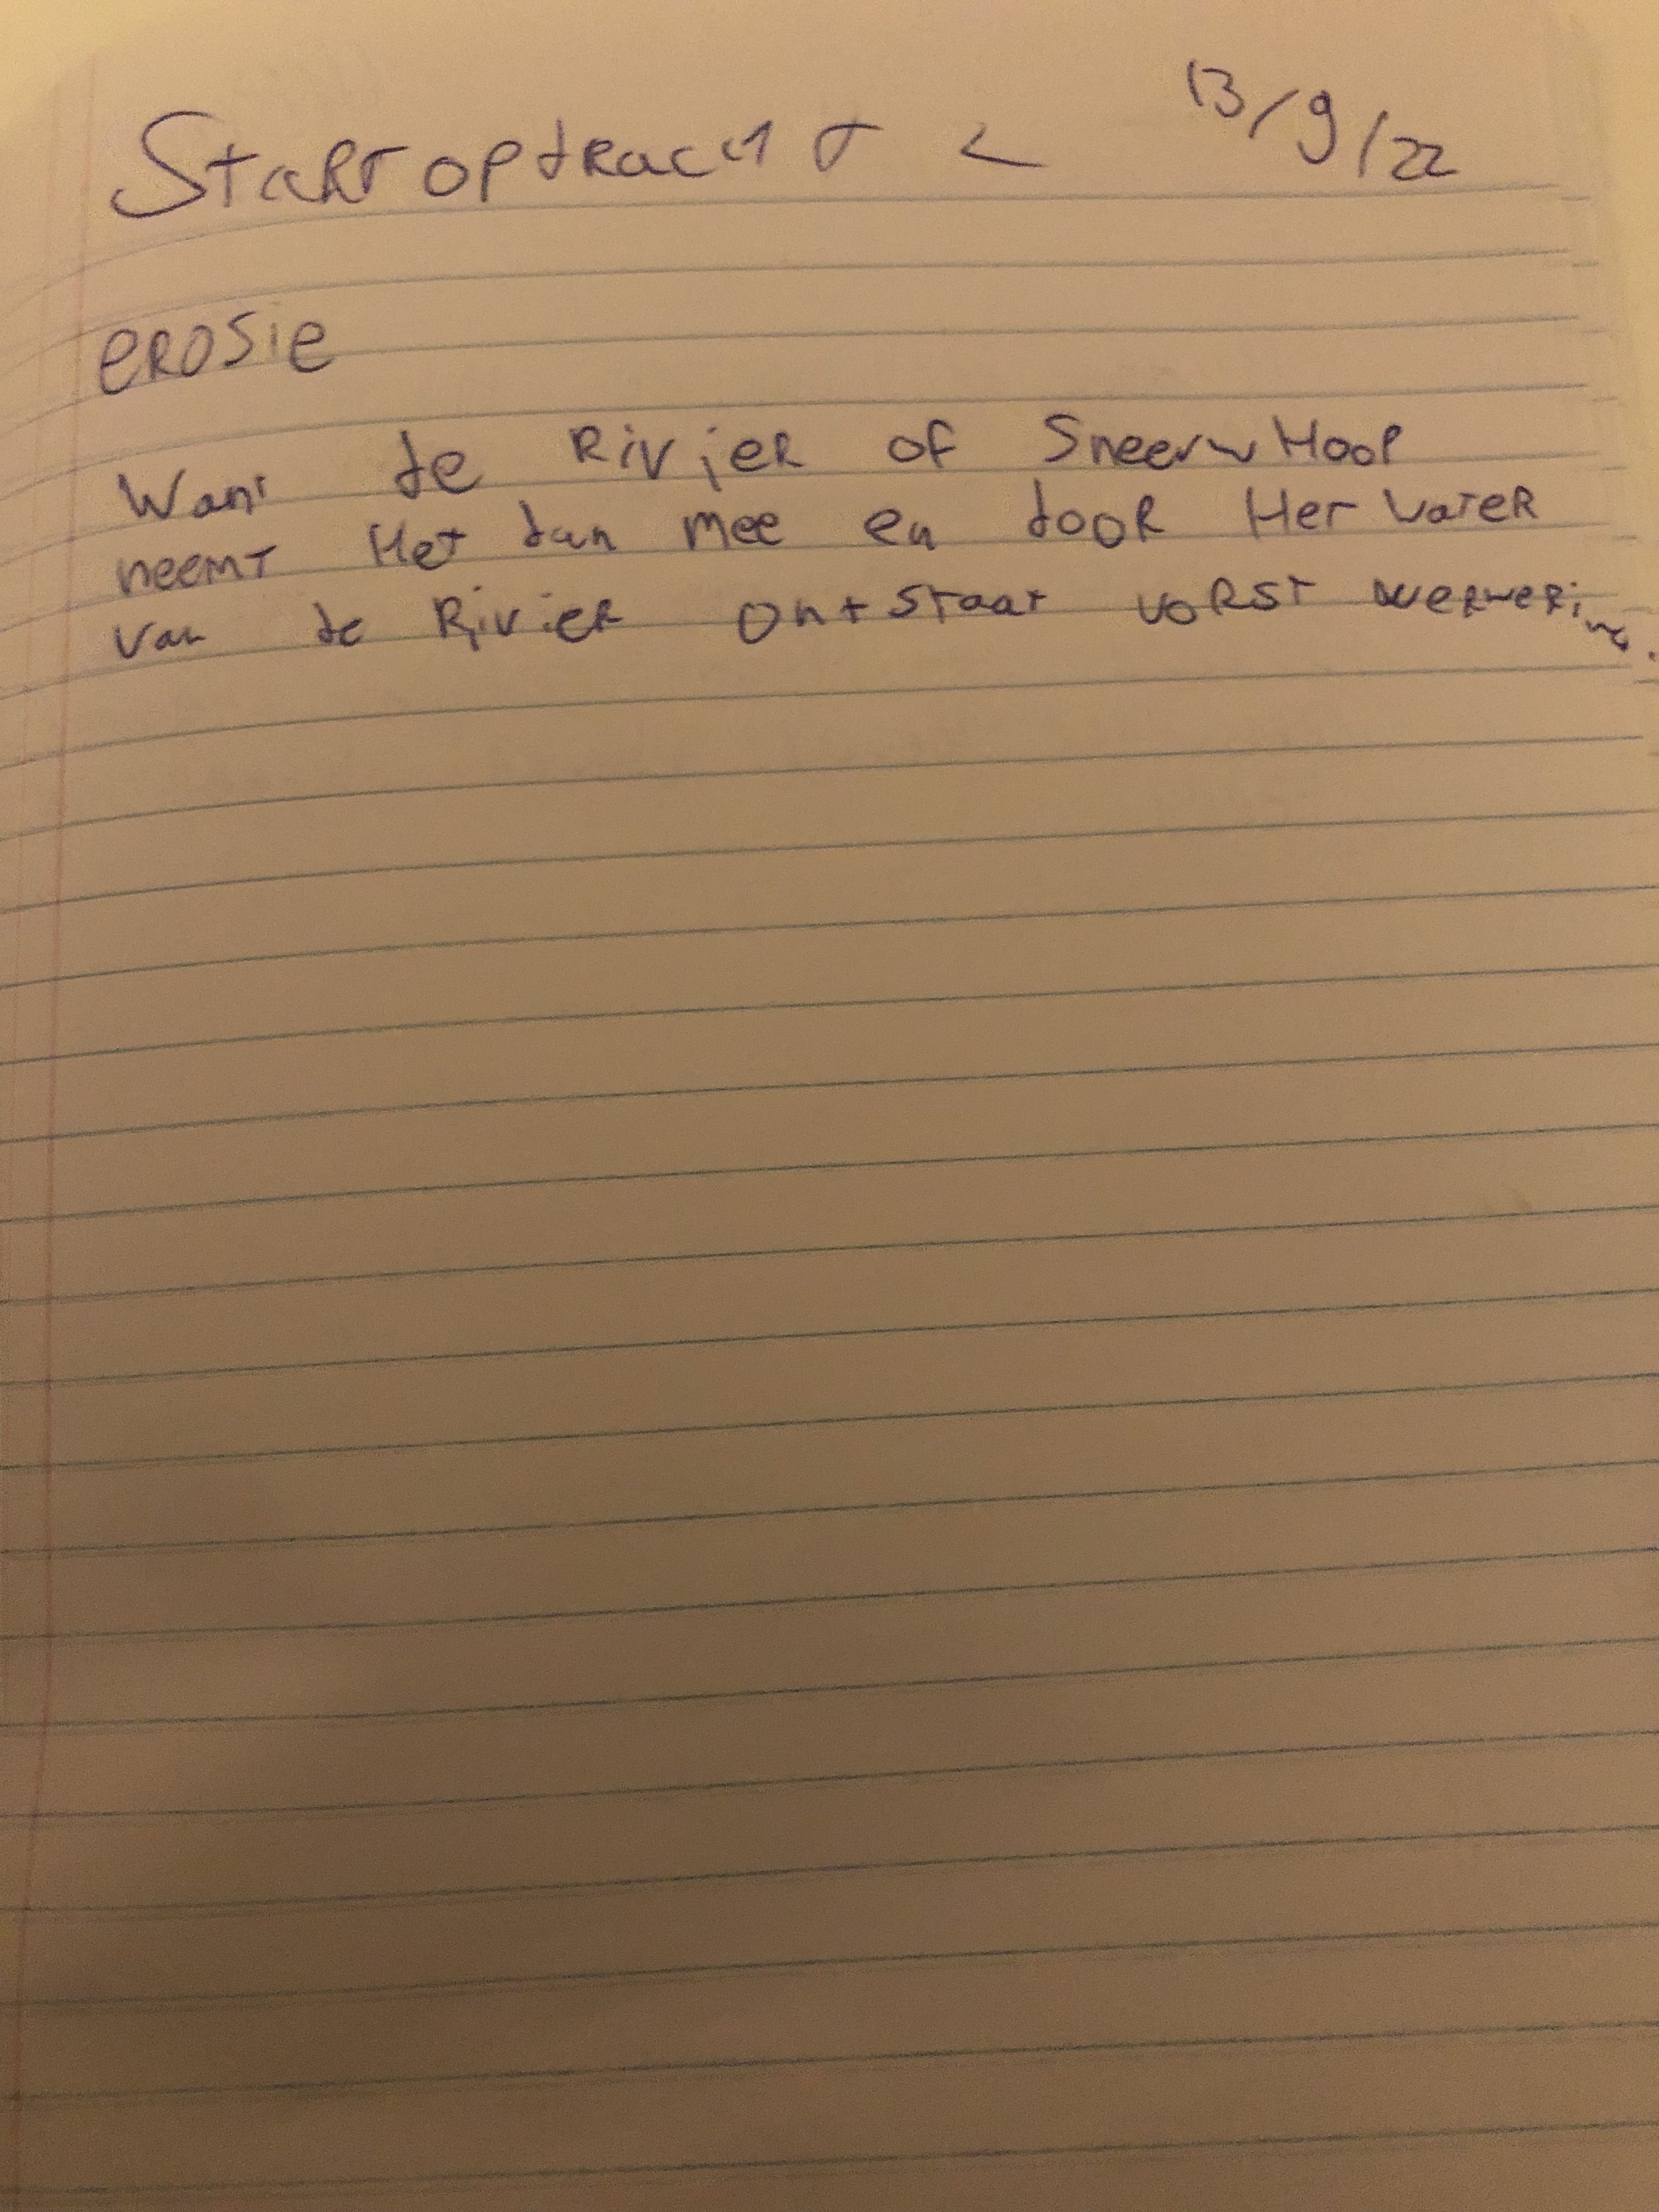 Startopdracht < 13/9/22
erosie
Want de Rivier of Sneeuw Hoop
neemt Het dan mee en door Het water
van de Rivier ontstaat vorst verwering.